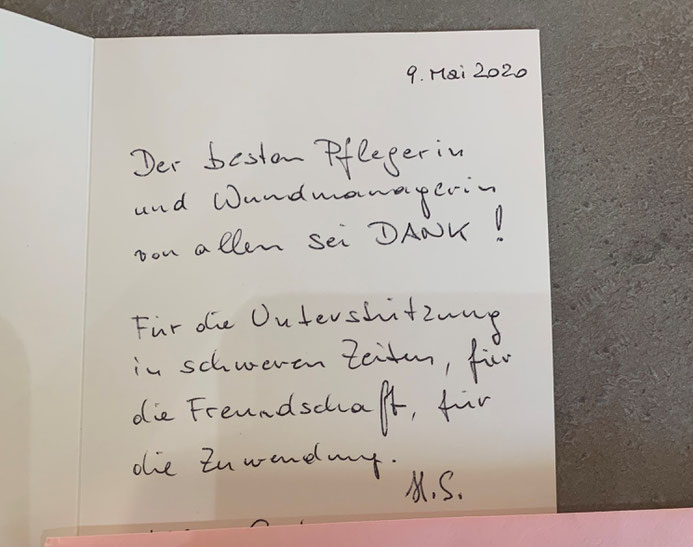 9. Mai 2020
Der besten Pflegerin
und Wundmanagerin
von allen sei DANK!
Für die Unterstützung
in schweren Zeiten, für
die Freundschaft, für
die Zuwendung.
H.S.